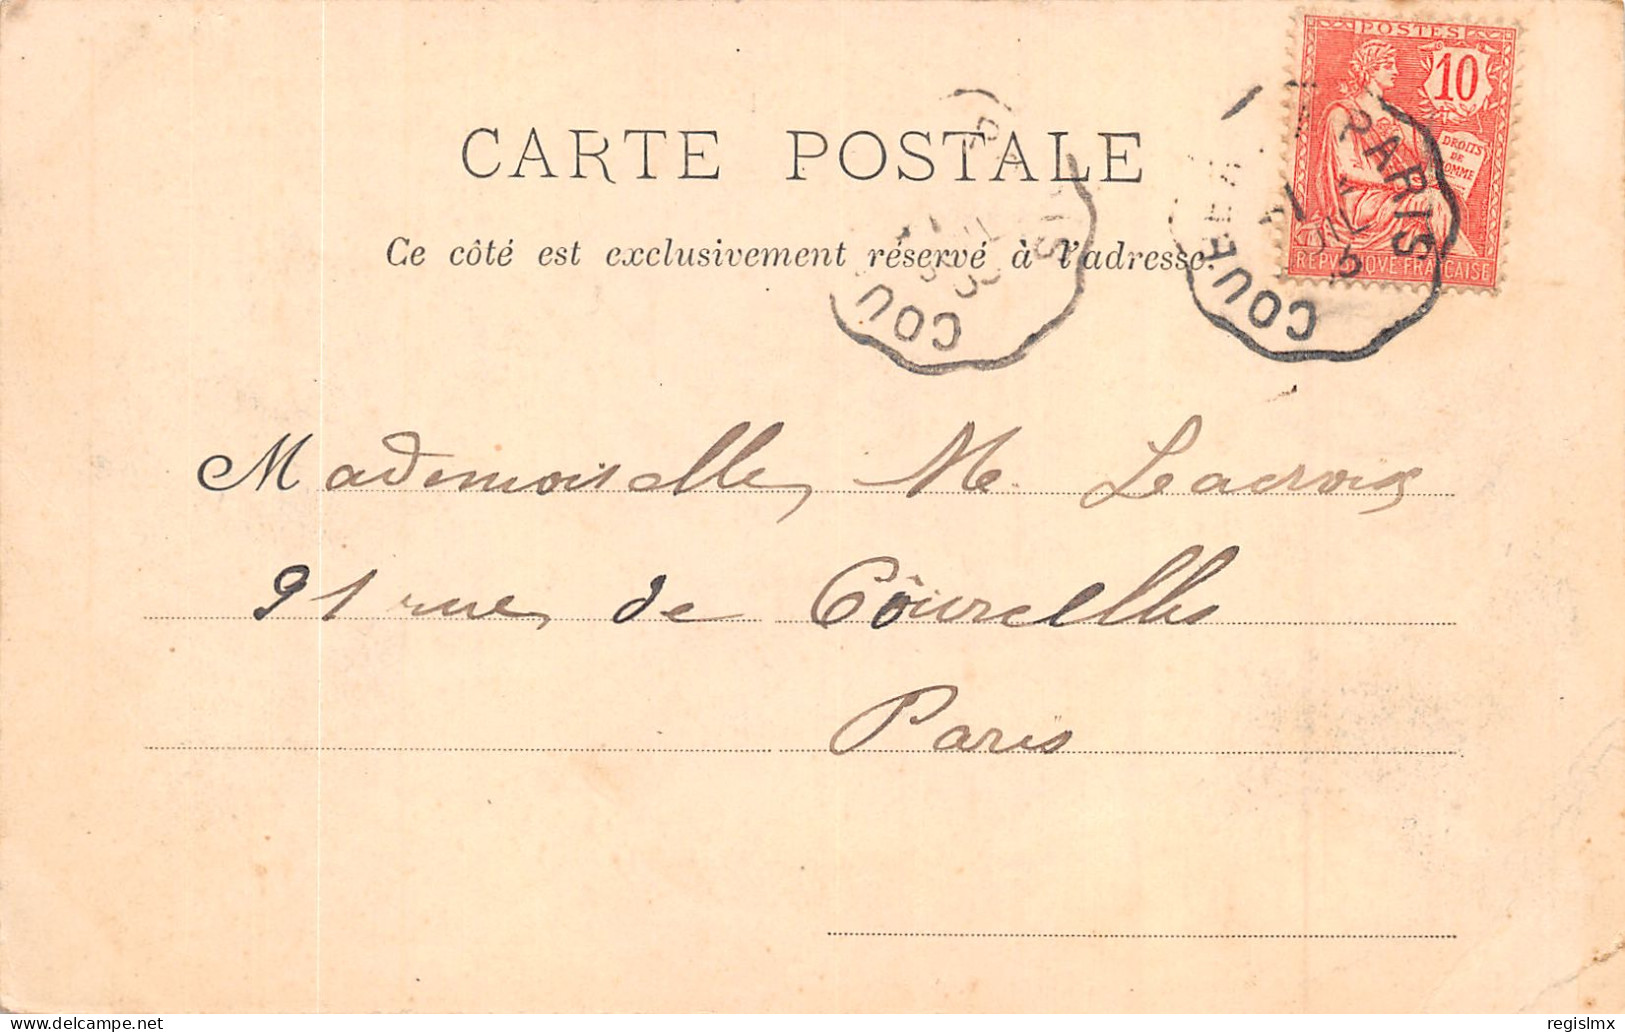 POSTES
10
DROITS
DE
HOMME
REPVBLIQVE FRANÇAISE
PARIS
JUIL
COU
COU
CARTE POSTALE
Ce côté est exclusivement réservé à l'adresse.
Mademoiselle M. Lacroix
91 rue de Courcelles
Paris
delcampe.net
regislmx